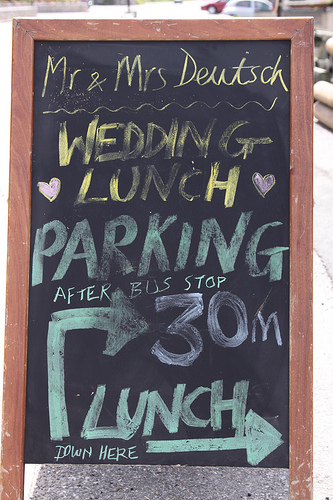 Mr & Mrs Deutsch
WEDDING
LUNCH
PARKING
AFTER BUS STOP
30m
LUNCH
DOWN HERE